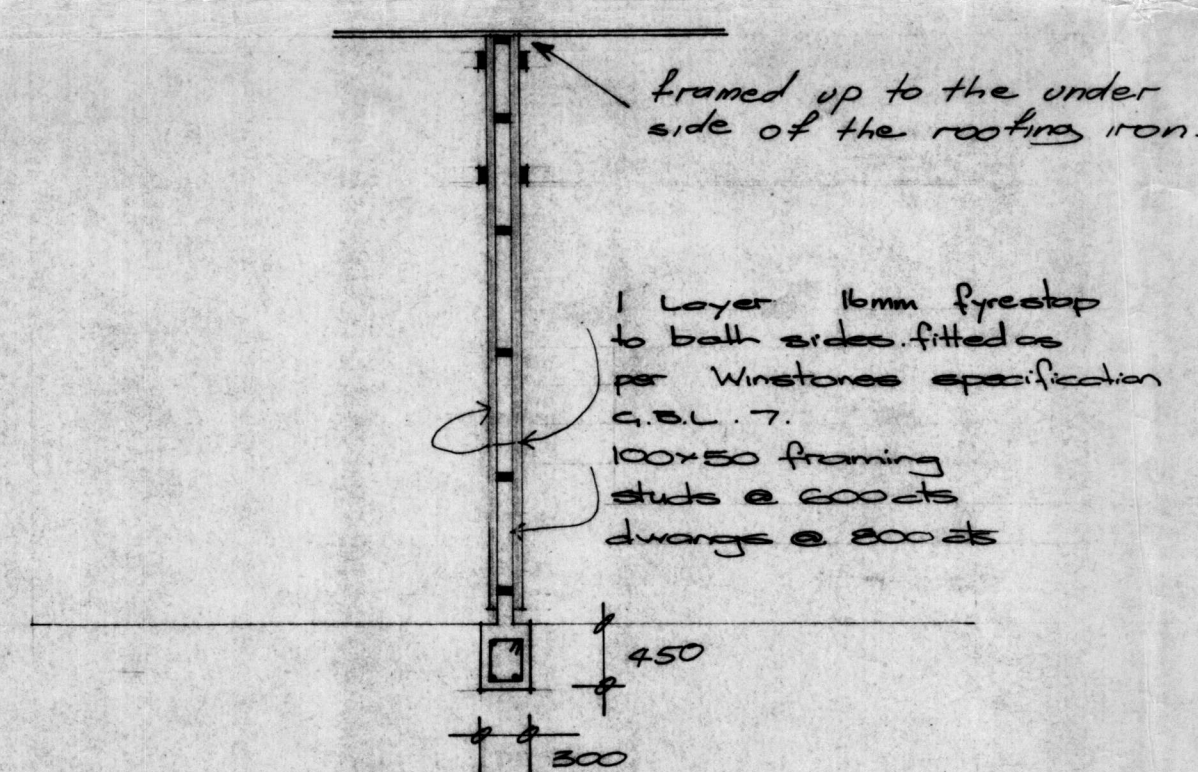 framed up to the under
side of the roofing iron
1 Layer 16mm fyrestop
to both sides. fitted as
per Winstones specification
G.B.L. 7.
100x50 framing
studs @ 600cts
dwangs @ 800cts
450
300